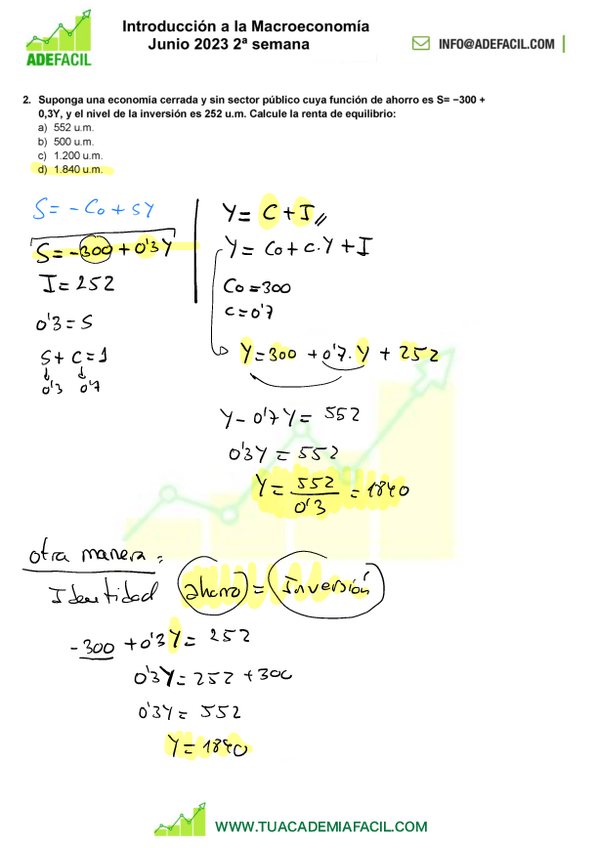 Introducción a la Macroeconomía
Junio 2023 2ª semana
INFO@ADEFACIL.COM
ADEFACIL
2. Suponga una economía cerrada y sin sector público cuya función de ahorro es S= −300 +
0,3Y, y el nivel de la inversión es 252 u.m. Calcule la renta de equilibrio:
a) 552 u.m.
b) 500 u.m.
c) 1.200 u.m.
d) 1.840 u.m.
S= -Co + sY
S= -300 + 0'3Y
I = 252
0'3 = s
s + c = 1
0'3 0'7
Y = C + I
Y = Co + c.Y + I
Co = 300
c = 0'7
Y = 300 + 0'7.Y + 252
Y - 0'7Y = 552
0'3Y = 552
Y = 552/0'3 = 1840
otra manera:
Identidad ahorro = Inversión
-300 + 0'3Y = 252
0'3Y = 252 + 300
0'3Y = 552
Y = 1840
WWW.TUACADEMIAFACIL.COM